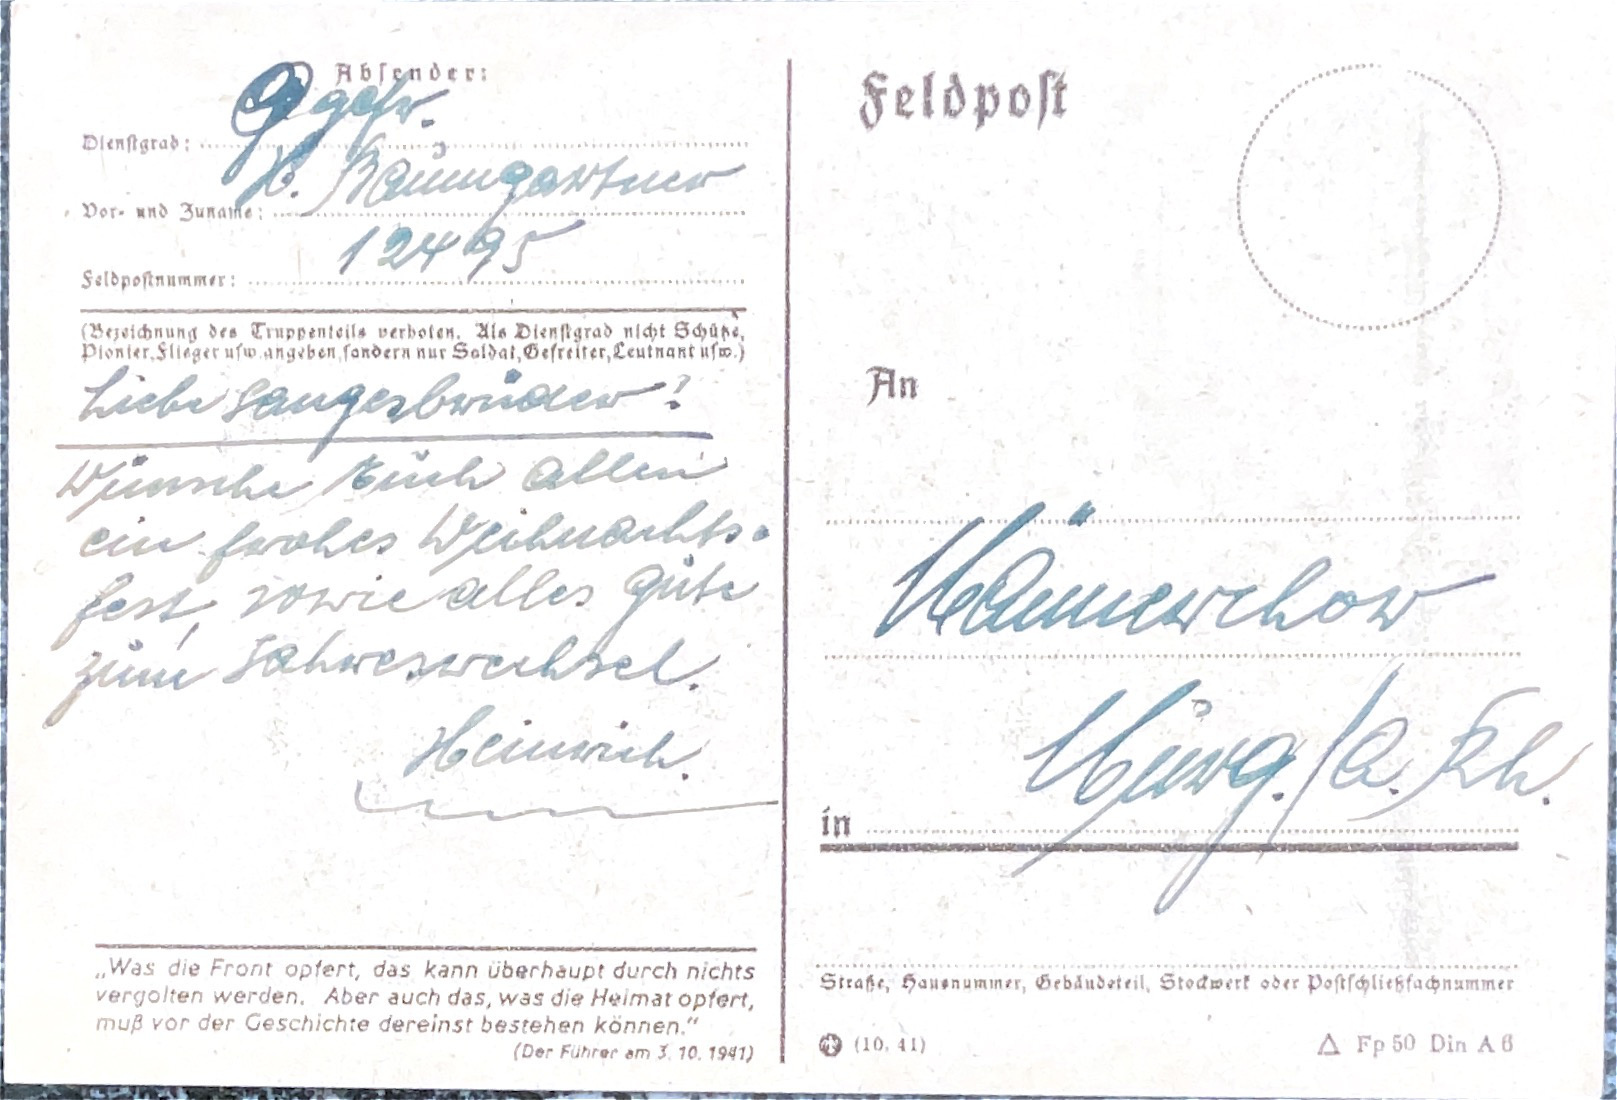 Absender:
Dienstgrad: Ogefr.
Vor- und Zuname: H. Baumgartner
Feldpostnummer: 12495
(Bezeichnung des Truppenteils verboten. Als Dienstgrad nicht Schütze,
Pionier, Flieger usw. angeben, sondern nur Soldat, Gefreiter, Leutnant usw.)
Liebe Sangesbrüder!
Wünsche Euch allen
ein frohes Weihnachts-
fest, sowie alles Gute
zum Jahreswechsel.
Heinrich.
„Was die Front opfert, das kann überhaupt durch nichts
vergolten werden. Aber auch das, was die Heimat opfert,
muß vor der Geschichte dereinst bestehen können.“
(Der Führer am 3. 10. 1941)
Feldpost
An
Männerchor
in Murg./a. Rh.
Straße, Hausnummer, Gebäudeteil, Stockwerk oder Postschließfachnummer
(10. 41)
Fp 50 Din A 6